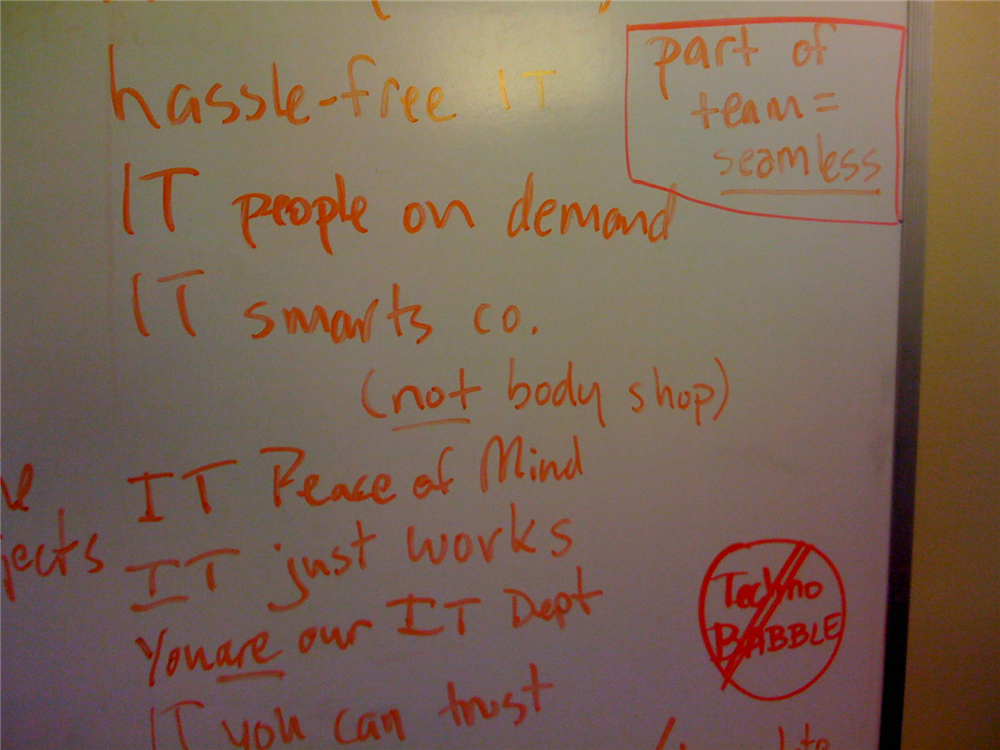 hassle-free IT
part of
team =
seamless
IT people on demand
IT smarts co.
(not body shop)
IT Peace of Mind
jects
IT just works
You are our IT Dept
IT you can trust
Techno
BABBLE